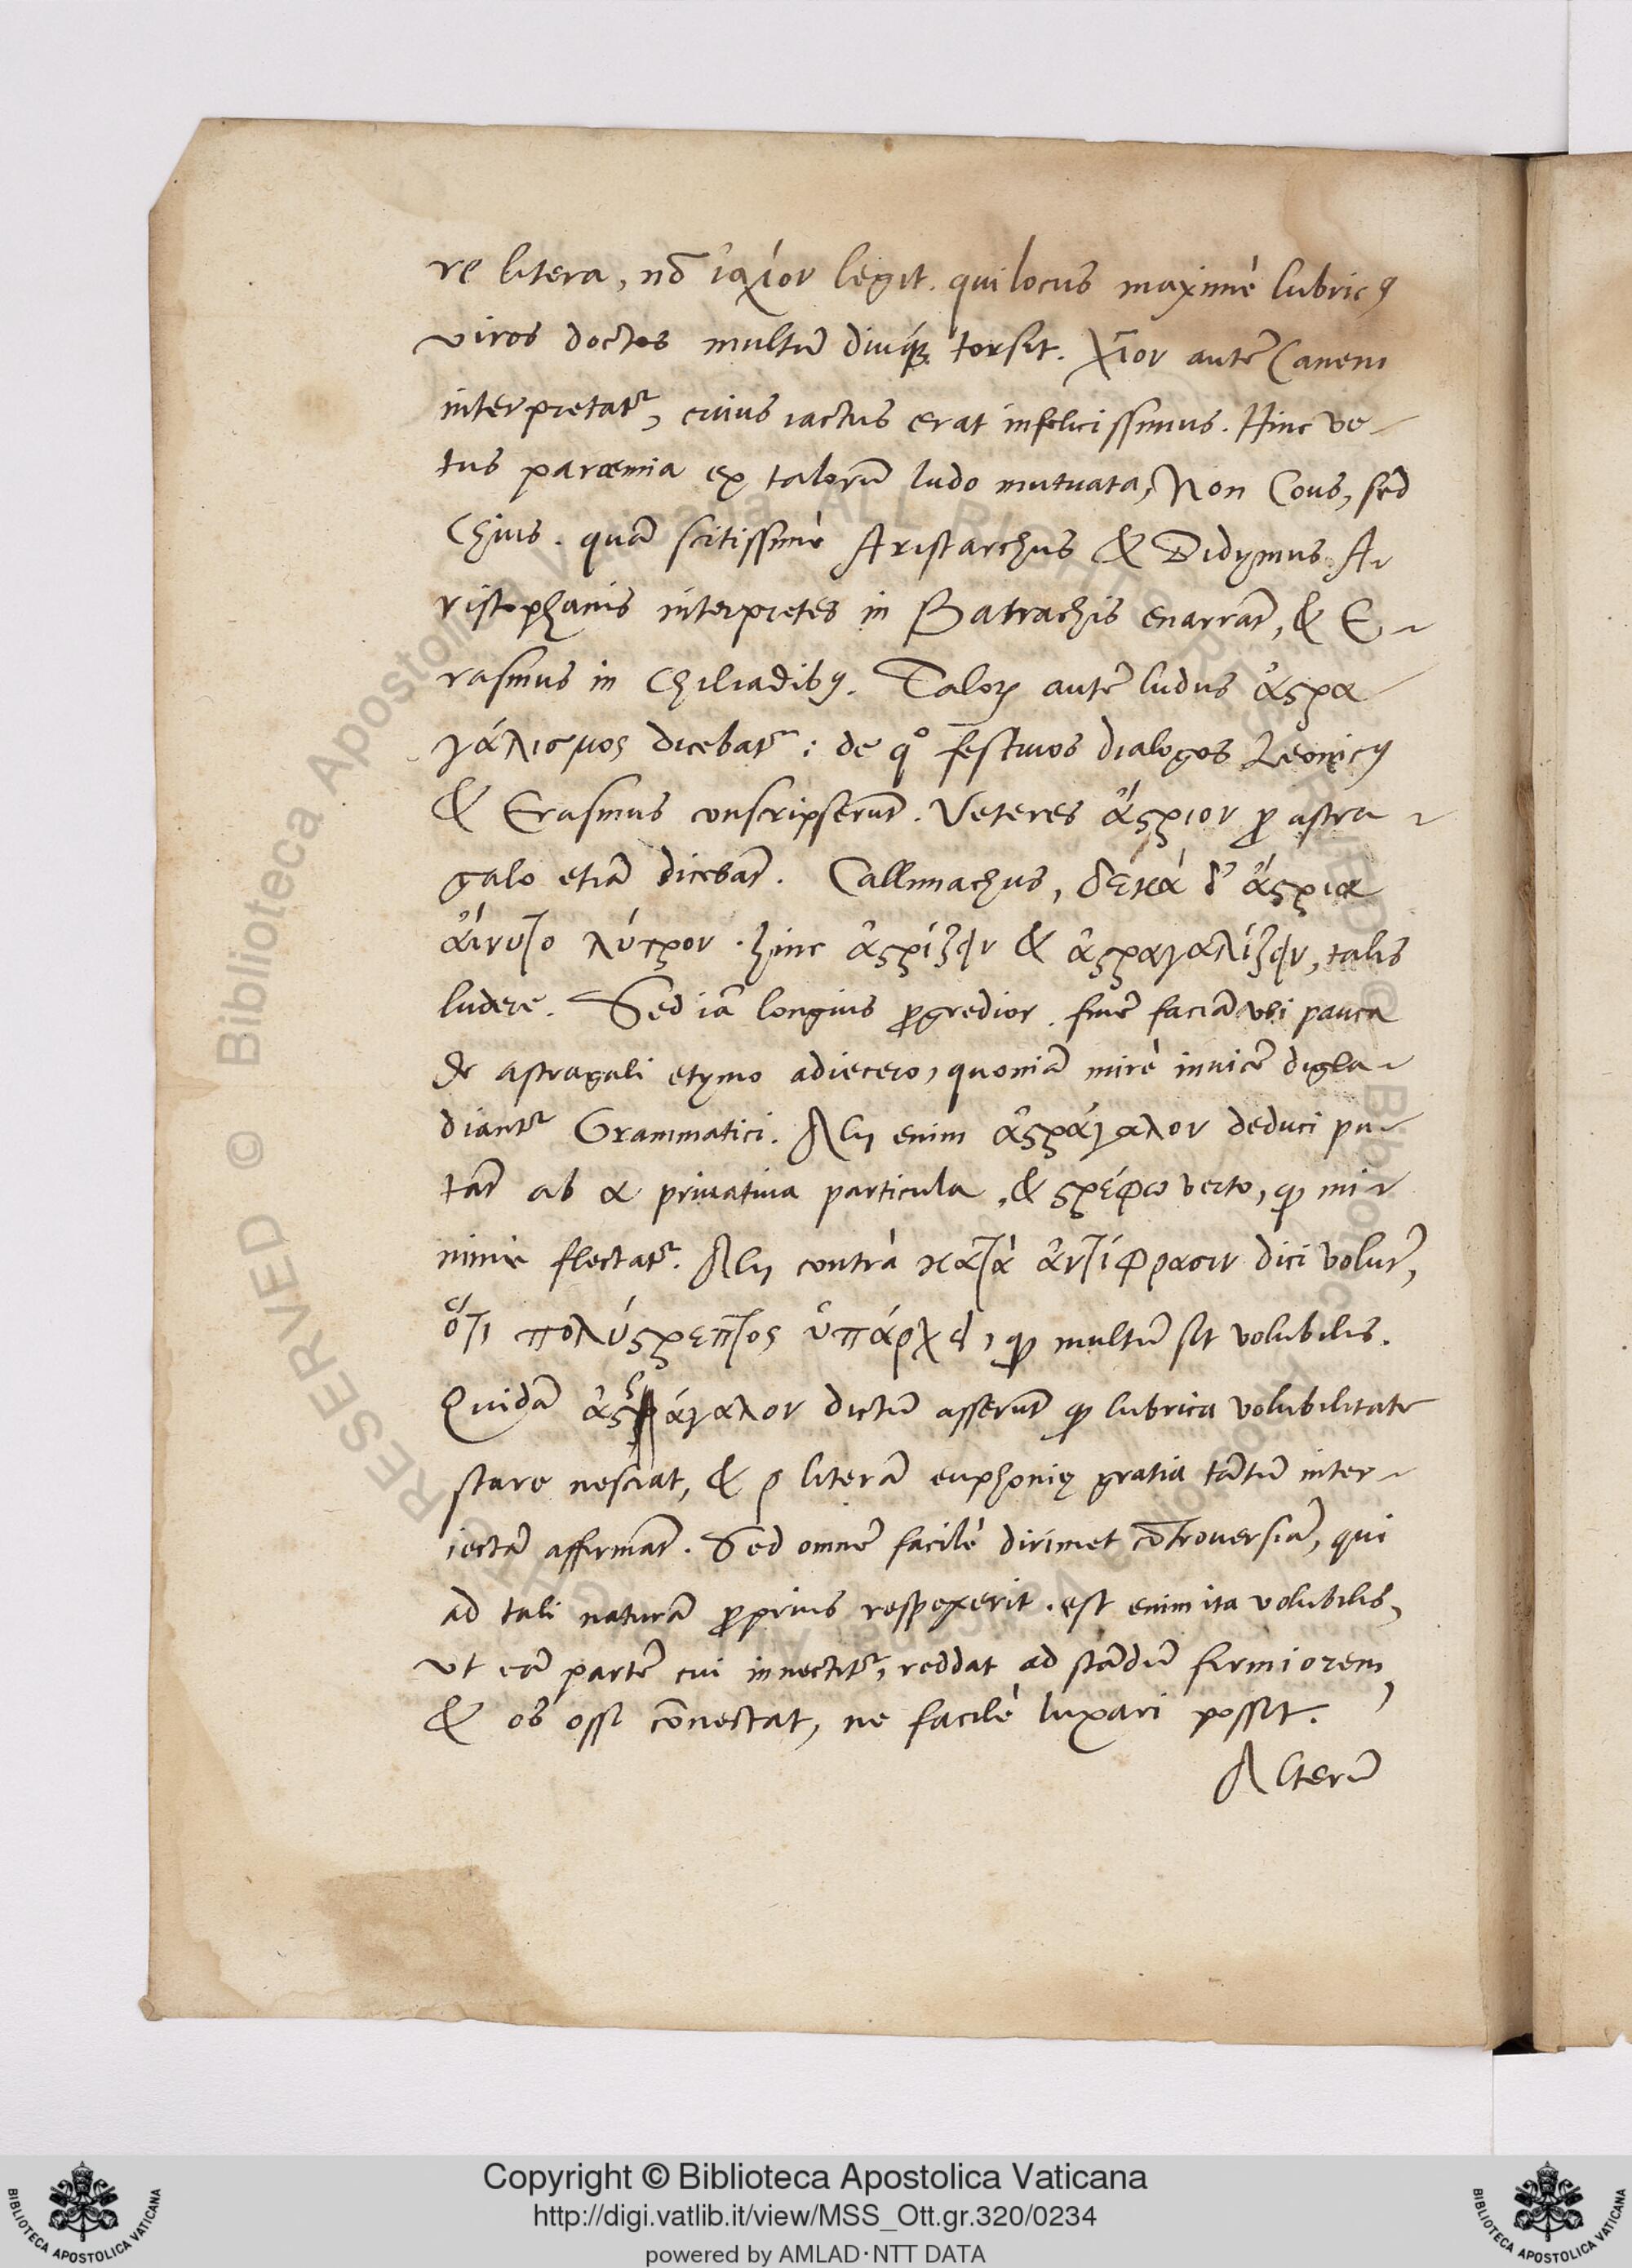 re litera, nō ἰαχίον legit. qui locus maximè lubricꝰ
viros doctos multū diuq́ꝫ torsit. χῖον autē Canem
interpretatᷣ, cuius iactus erat infelicissimus. Hinc ve-
tus parœmia ex talorū ludo mutuata, Non Cous, sed
Chius. quā scitissimè Aristarchus & Didymus A-
ristophanis interpretes in Batrachis enarrāt, & E-
rasmus in Chiliadibꝰ. Taloꝝ autē ludus ἀϛρα-
γάλισμος dicebatᷣ: de qͦ festiuos dialogos Leonicꝰ
& Erasmus conscripserūt. Veteres ἄϛριον ꝓ astra-
galo etiā dicebāt. Callimachus, δεκά δ' ἄϛρια
ἄινυτο λύτρον. hinc ἀϛρίζειν & ἀϛραγαλίζειν, talis
ludere. Sed iā longius ꝓgredior. finē faciā vbi pauca
de astragali etymo adiecero, quoniā mirè inuicē digla-
diantᷣ Grammatici. Alij enim ἀϛράγαλον deduci pu-
tāt ab α priuatiua particula, & ϛρέφω verto, ꝙ mi-
nimè flectatᷣ. Alij contrà κατὰ ἀντίφρασιν dici volūt,
ὅτι πολύϛρεπτος ὑπάρχει, ꝙ multū sit volubilis.
Quidā ἀϛράγαλον dictū asserūt ꝙ lubrica volubilitate
stare nesciat, & ρ literā euphonię gratia tātū inter-
iectā affirmāt. Sed omnē facilè dirimet cōtrouersiā, qui
ad tali naturā ꝓprius respexerit. est enim ita volubilis,
vt eā partē cui innectitᷣ, reddat ad stādū firmiorem,
& os ossi cōnectat, ne facilè luxari possit.
Alterū
Copyright © Biblioteca Apostolica Vaticana
http://digi.vatlib.it/view/MSS_Ott.gr.320/0234
powered by AMLAD·NTT DATA